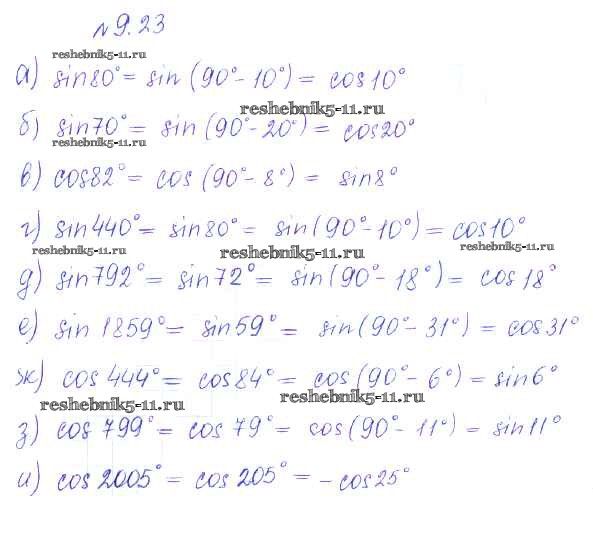 №9.23
reshebnik5-11.ru
а) sin80° = sin (90° - 10°) = cos10°
reshebnik5-11.ru
б) sin70° = sin (90° - 20°) = cos20°
reshebnik5-11.ru
в) cos82° = cos (90° - 8°) = sin8°
г) sin440° = sin80° = sin(90° - 10°) = cos10°
reshebnik5-11.ru reshebnik5-11.ru reshebnik5-11.ru
д) sin792° = sin72° = sin(90° - 18°) = cos18°
е) sin1859° = sin59° = sin(90° - 31°) = cos31°
ж) cos444° = cos84° = cos(90° - 6°) = sin6°
reshebnik5-11.ru reshebnik5-11.ru
з) cos799° = cos79° = cos(90° - 11°) = sin11°
и) cos2005° = cos205° = -cos25°